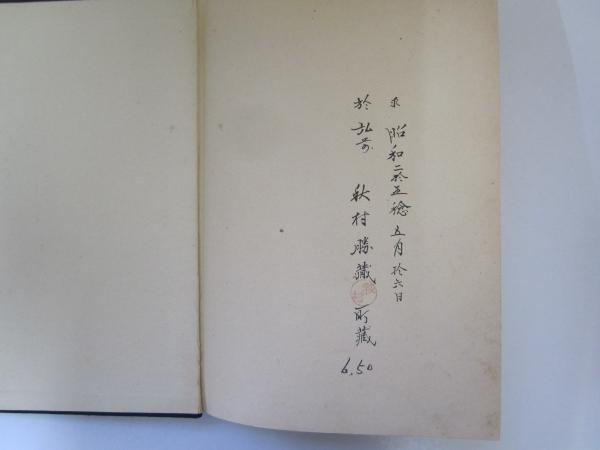 求 昭和二拾五稔五月拾六日
於弘前 秋村勝藏 所藏
6.50